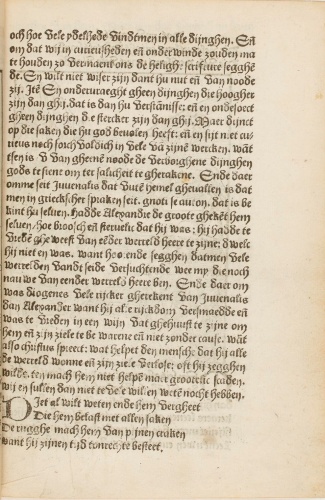 och hoe vele ydelhede vindtmen in alle dinghen. Eñ
om dat wij in curieusheden eñ onderwinde zouden ma
te houden zo vermaent ons de heligh: scrifture segghē
de. En wilt niet wiser zijn dant hu nut eñ van noode
zij. Itē En ondervraeght gheen dijnghen die hoogher
zijn dan ghij. dat is dan hu verstānisse: eñ en ondsoect
gheen dijnghen die stercker zijn dan ghij. Maer dijnct
op die saken die hu god bevolen heeft: eñ en sijt niet cu-
rieus noch sorchvoldich in vele vā zijnē wercken. want
tsen is van gheenē noode de verborghene dijnghen
gods te siene om ter salicheit te gherakene. Ende daer
omme seit Juvenalis dat uutē hemel ghevallen is dat
men in griekscher spraken seit. gnoti se auton. dat is be
kint hu selven. hadde Alexander de groote ghekēt hem
selven hoe broosch eñ sterveliic dat hij was: hij hadde te
vredē gheweest van eēder werreld heere te zijne: d welc
hij niet en was. want hoorende segghen datmen vele
werrelden vandt seide versuchtende wee my die noch
nauwe van eender werreld heere ben. Ende daer om
was diogenes vele rijcker gherekent van Juvenalis
dan Alexander want hij al erijckdom versmaedde eñ
was te vreden in een wijn vat ghehuust te zijne om
hem eñ zijn ziele te bewarene eñ niet zonder cause. wāt
also christus spreect: wat helpet den mensche dat hij alle
de werreld wonne eñ zijn ziele verlose: oft hij segghen
wilde. ten mach hem niet helpē maer grootelic scaden.
wij en sullen dan niet te vele willen wetē nocht hebben.
Diet al wilt weten ende hem vergheet
Die hem belast met allen saken
De rugghe mach hem van pijnen craken
want hij zijnen tijd tonrechte besteet.